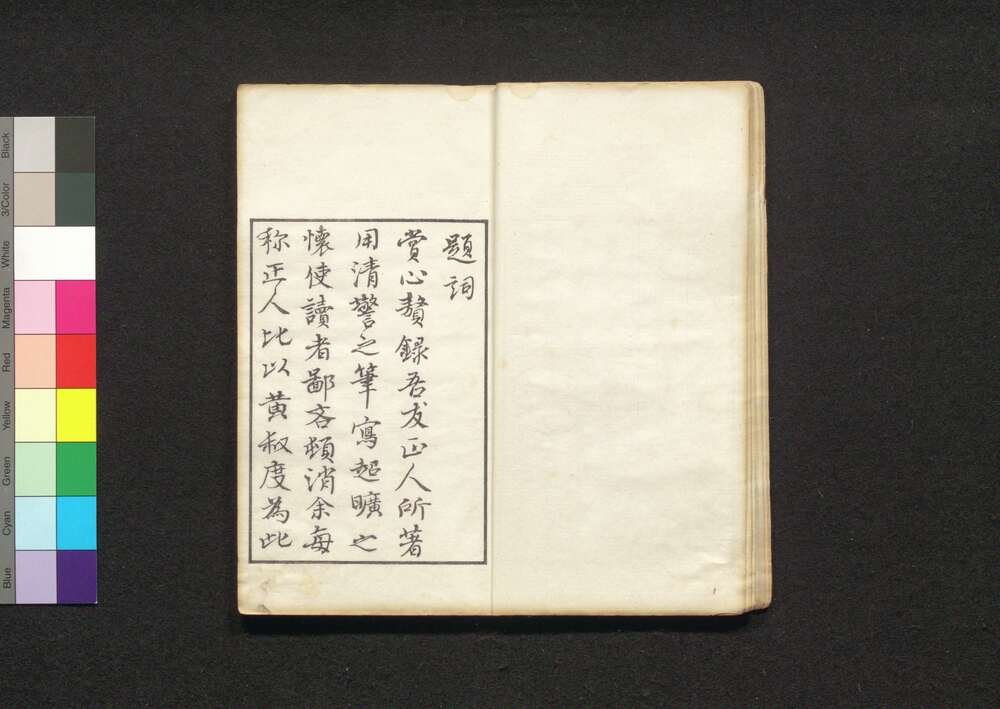 題詞
賞心贅錄吾友正人所著
用清警之筆寫超曠之
懷使讀者鄙吝頓消余每
称正人比以黄叔度為此
Black
3/Color
White
Magenta
Red
Yellow
Green
Cyan
Blue